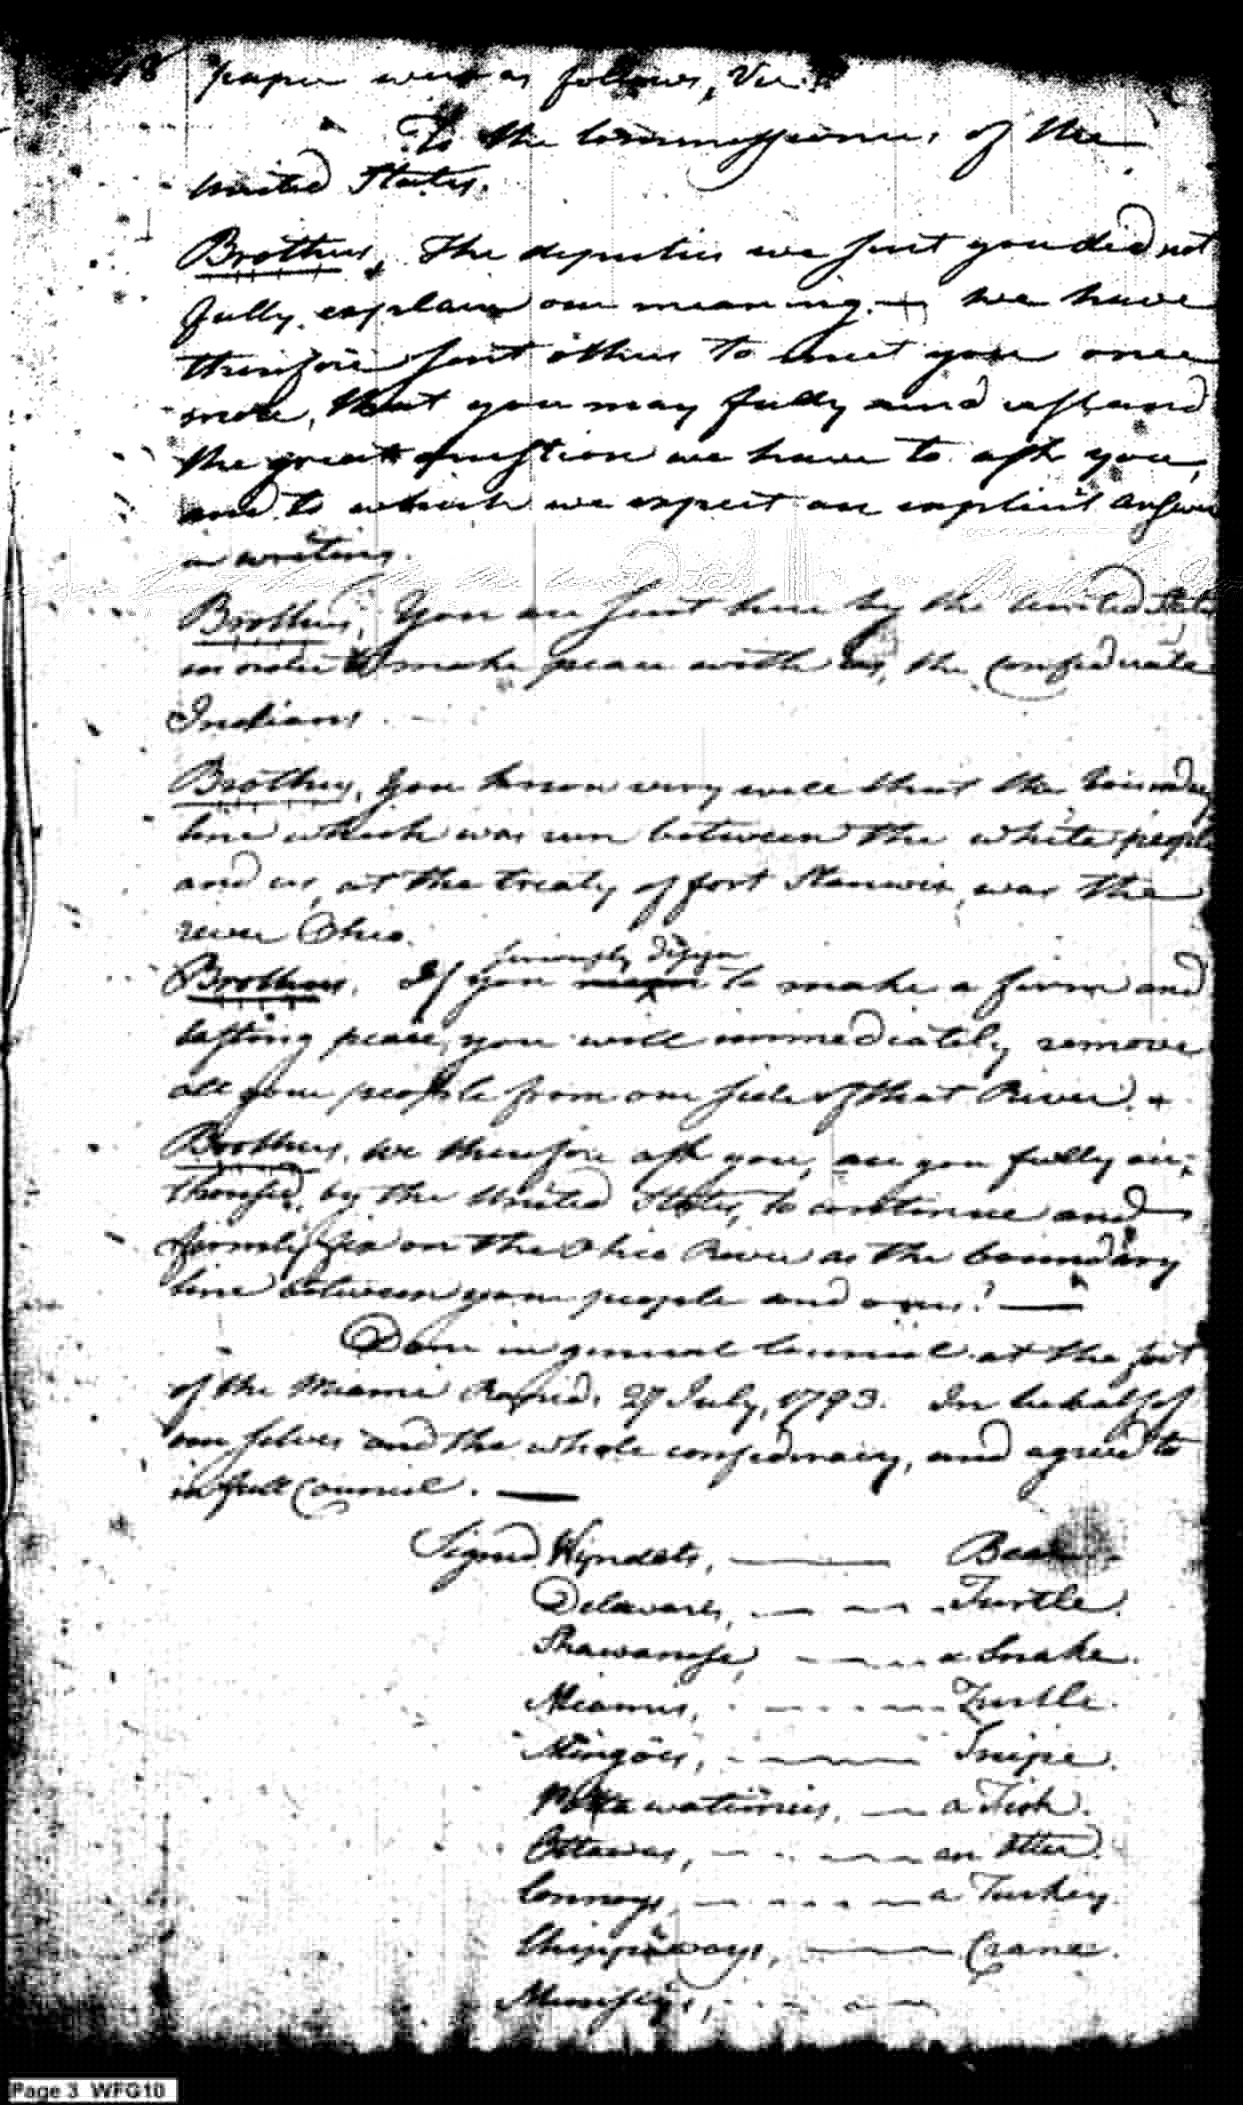 18 paper were as follows, Viz.
To the Commissioners of the
United States.
Brothers, The deputies we sent you did not
fully explain our meaning. we have
therefore sent others to meet you once
more, that you may fully understand
the great question we have to ask you,
and to which we expect an explicit answer
in writing.
Brothers, You are sent here by the United States
in order to make peace with us, the confederate
Indians.
Brothers, you know very well that the boundary
line which was run between the white people
and us, at the treaty of fort Stanwix, was the
river Ohio.
seriously design
Brothers, If you mean to make a firm and
lasting peace, you will immediately remove
all your people from our side of that River.
Brothers, we therefore ask you, are you fully au-
thorised, by the United States, to continue and
firmly fix on the Ohio River as the boundary
line between your people and ours? —
Done in general Council at the foot
of the Miami Rapids 27 July, 1793. In behalf of
our selves and the whole confederacy, and agreed to
in full Council. —
Signed Wyndots, — Bear.
Delawares, — Turtle.
Shawanese, — a Snake.
Miamis, — Turtle.
Mingoes, — Snipe.
Pottawatimies, — a Fish.
Ottawas, — an otter.
Connoys, — a Turkey.
Chippaways, — Crane.
Munseys, —
Page 3 WFG10